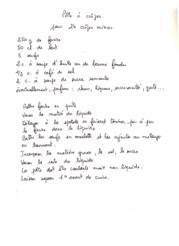 Pâte à crêpes
pour 24 crêpes minces
250 g de farine
50 cl de lait
3 œufs
2 c. à soupe d'huile ou de beurre fondu
1/2 c. à café de sel
2 c. à soupe de sucre semoule
éventuellement, parfum : rhum, liqueur, sucre vanillé,
Battre farine en puits
Verser la moitié du liquide
Délayer à la spatule en faisant tomber peu à peu
la farine dans le liquide
Battre les œufs en omelette et les ajouter au mélange
en tournant.
Incorporer la matière grasse, le sel, le sucre
Verser le reste du liquide
La pâte doit être coulante mais non liquide.
Laisser reposer 1h avant de cuire.